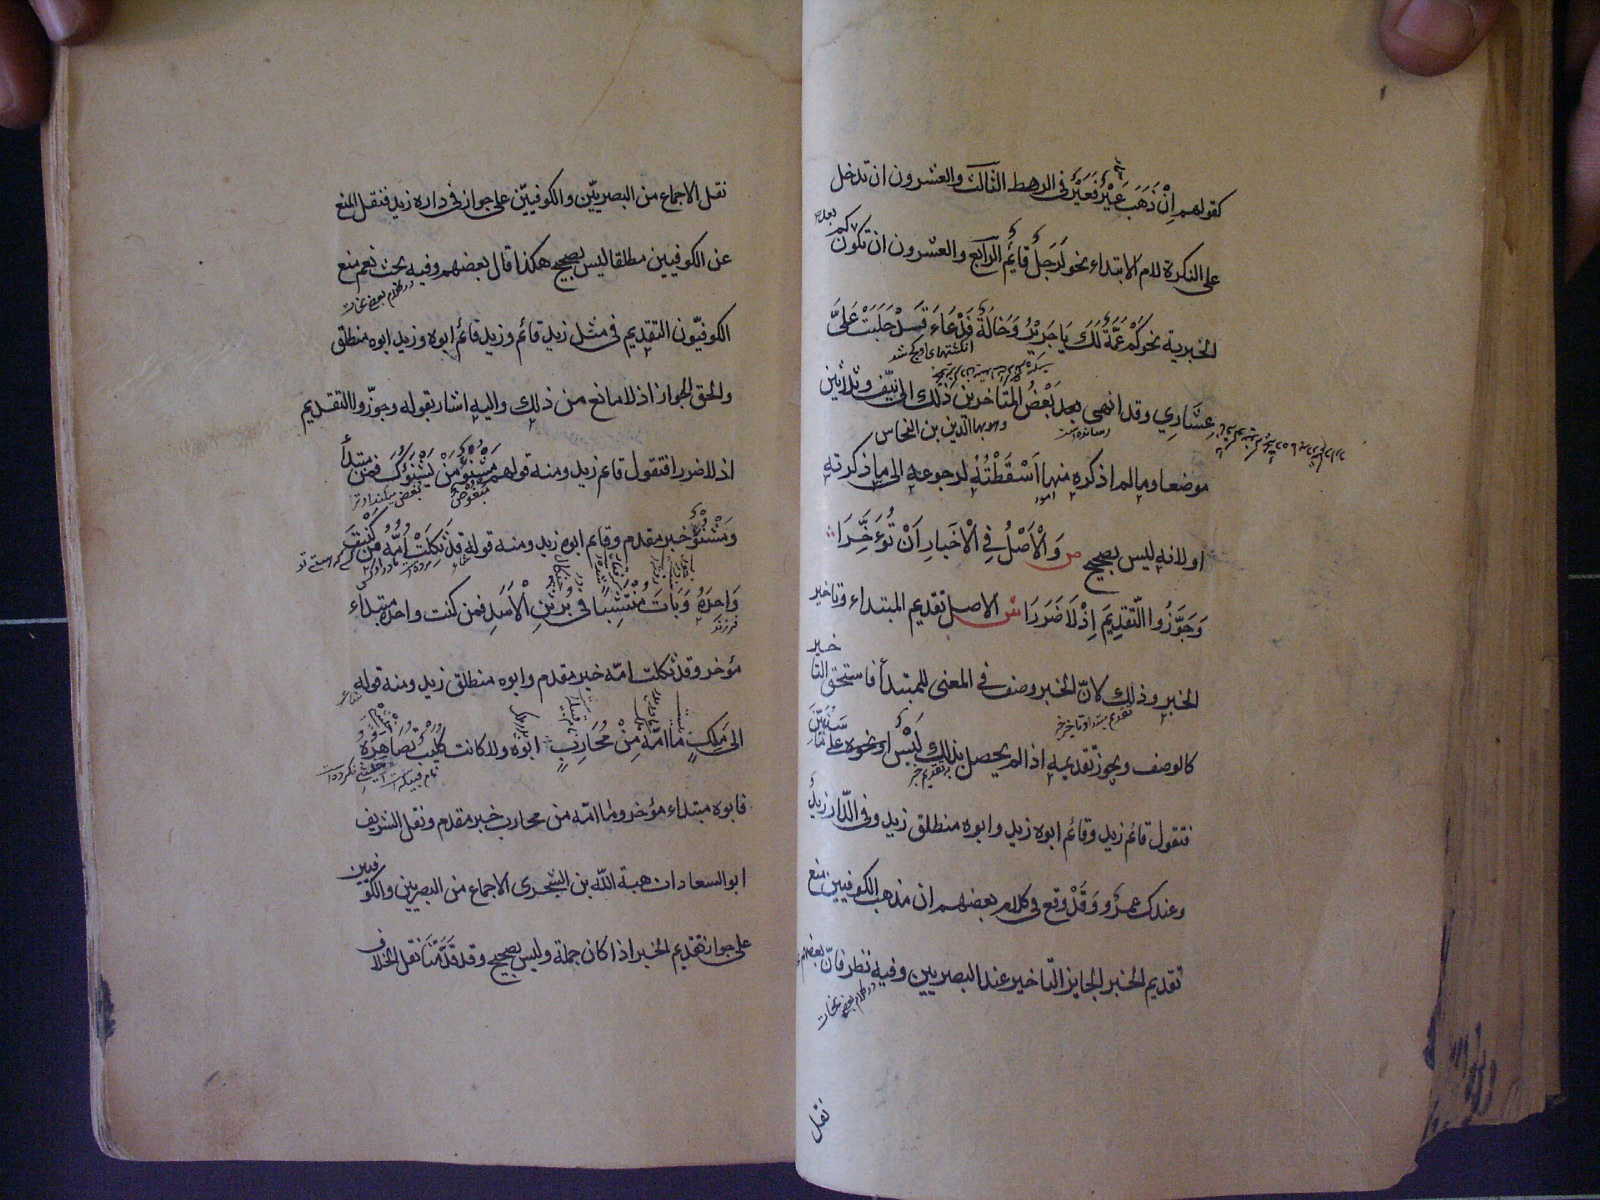 كقولهم اِنْ ذَهَبَ عَيْرٌ فَعَيْرٌ فى الرهط الثالث والعشرون ان تدخل
على النكرة لام الابتداء نحو لَرَجلٌ قائمٌ الرابع والعشرون ان تكون كم
الخبرية نحو كَمْ عَمَّةٌ لَكَ يَا جَرِيْرُ وَخَالَةٌ فَدْعَاءَ قَدْ حَلَبَتْ عَلَىَّ
عِشَارِي وقد انهى بعد بَعْضُ المتأخرين ذلك الى نيّف وثلاثين
وهو بهاالدين بن النحاس
موضعا وما لم اذكره منها اَسْقَطْتُهُ لرجوعه الى ما ذكرته
او لانه ليس بصحيح ص وَالْاَصْلُ فِي الْاَخْبارِ اَنْ تُوَءَخَّرَا
وَجَوَّزُوا التَّقدِيمَ اِذْ لَا ضَرَرَا ش الاصل تقديم المبتداء وتاخير
الخبر وذلك لانّ الخبر وصف فى المعنى للمبتدأ فاستحق التاخير
كالوصف ويجوز تقديمه اذا لم يحصل بذلك لَبْسٌ او نحوه على ما سَنُبَيِّنُ
فتقول قائم زيد وقائم ابوه زيد وابوه منطلق زيد وفى الدّار زيدٌ
وعندك عمرٌو وَقَدْ وقع فى كلام بعضهم ان مذهب الكوفيين منع
تقديم الخبر الجايز التّاخير عند البصريين وفيه نظر فانّ بعضهم
در كلام بعضى نحات
نقل
نقل الاجماع من البصريّين والكوفيّين على جواز فى داره زيد فنقل المنع
عن الكوفيين مطلقا ليس بصحيح هكذا قال بعضهم وفيه بحث نعم منع
در كلام بعضى نحات
الكوفيّون التقديم فى مثل زيد قائم وزيد قائم ابوه وزيد ابوه منطلق
والحق الجواز اذ لا مانع من ذلك واليه اشار بقوله وجوّزوا التقديم
اذ لا ضررا فتقول قائم زيد ومنه قولهم مَشْنُوْءٌ مَنْ يَشْنَؤُكَ فمن مبتدأ
وَمَشْنُوْءٌ خبر مقدم وقائم ابوه زيد ومنه قوله قد ثَكِلَتْ اُمُّهُ مَن كُنْتَ
وَاحِدَهُ وَبَاتَ مُنْتَشِبًا فى بُرْثنِ الْاَسَدِ فمن كنت واحده مبتداء
مؤخر وقد ثكلت امّه خبر مقدم وابوه منطلق زيد ومنه قوله
الى مَلِكٍ ما امّهُ مِنْ مُحَارِبٍ ابوهُ ولا كانت كُلَيْبٌ تُصَاهِرُهُ
فابوه مبتداء مؤخر وما امّه من محارب خبر مقدم ونقل الشريف
ابو السعادات هبة اللّه بن الشجرى الاجماع من البصريين والكوفيين
على جواز تقديم الخبر اذا كان جملة وليس بصحيح وقد قدّمْنَا نقل الخلاف